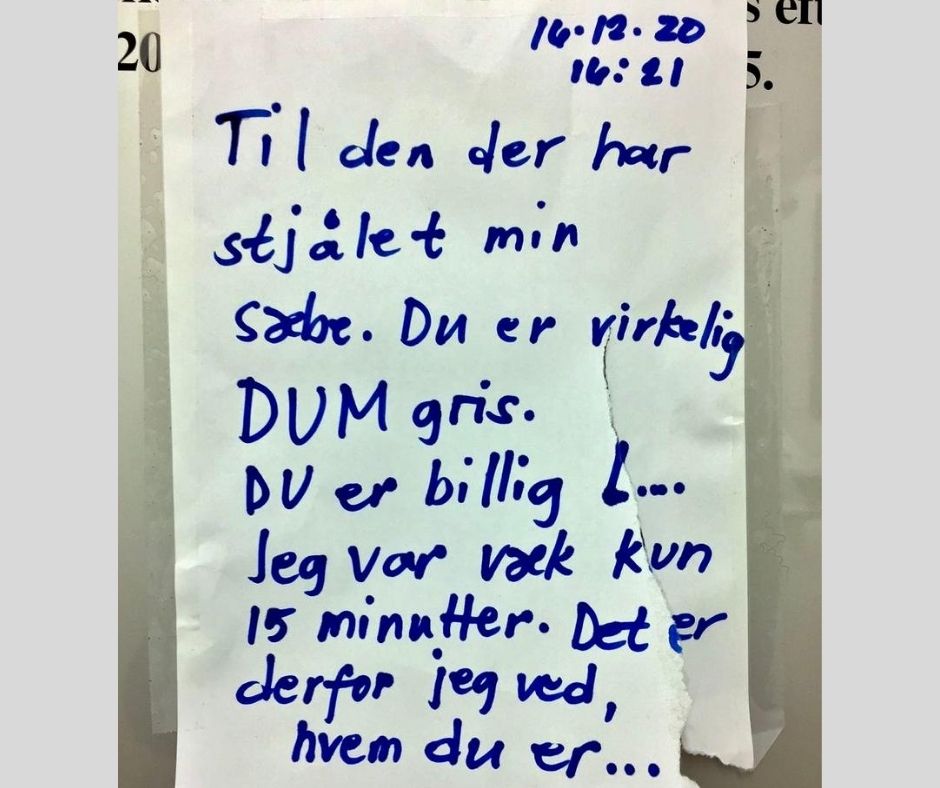 s eft
20
5.
14.12.20
14:21
Til den der har
stjålet min
sæbe. Du er virkelig
DUM gris.
DU er billig L....
Jeg var væk kun
15 minutter. Det er
derfor jeg ved,
hvem du er...